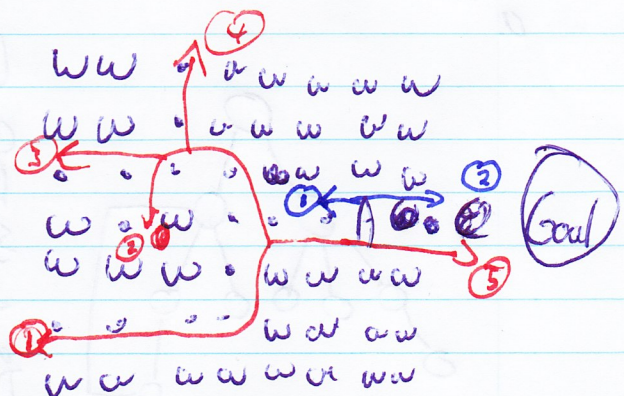 ④
W W . . w w w w w
W W . w w w w w
③
. . . . w w w
① ②
W . W . . .
② Goal
W W W . w w w w
⑤
① . . . . w w w w
w w w w w w w w